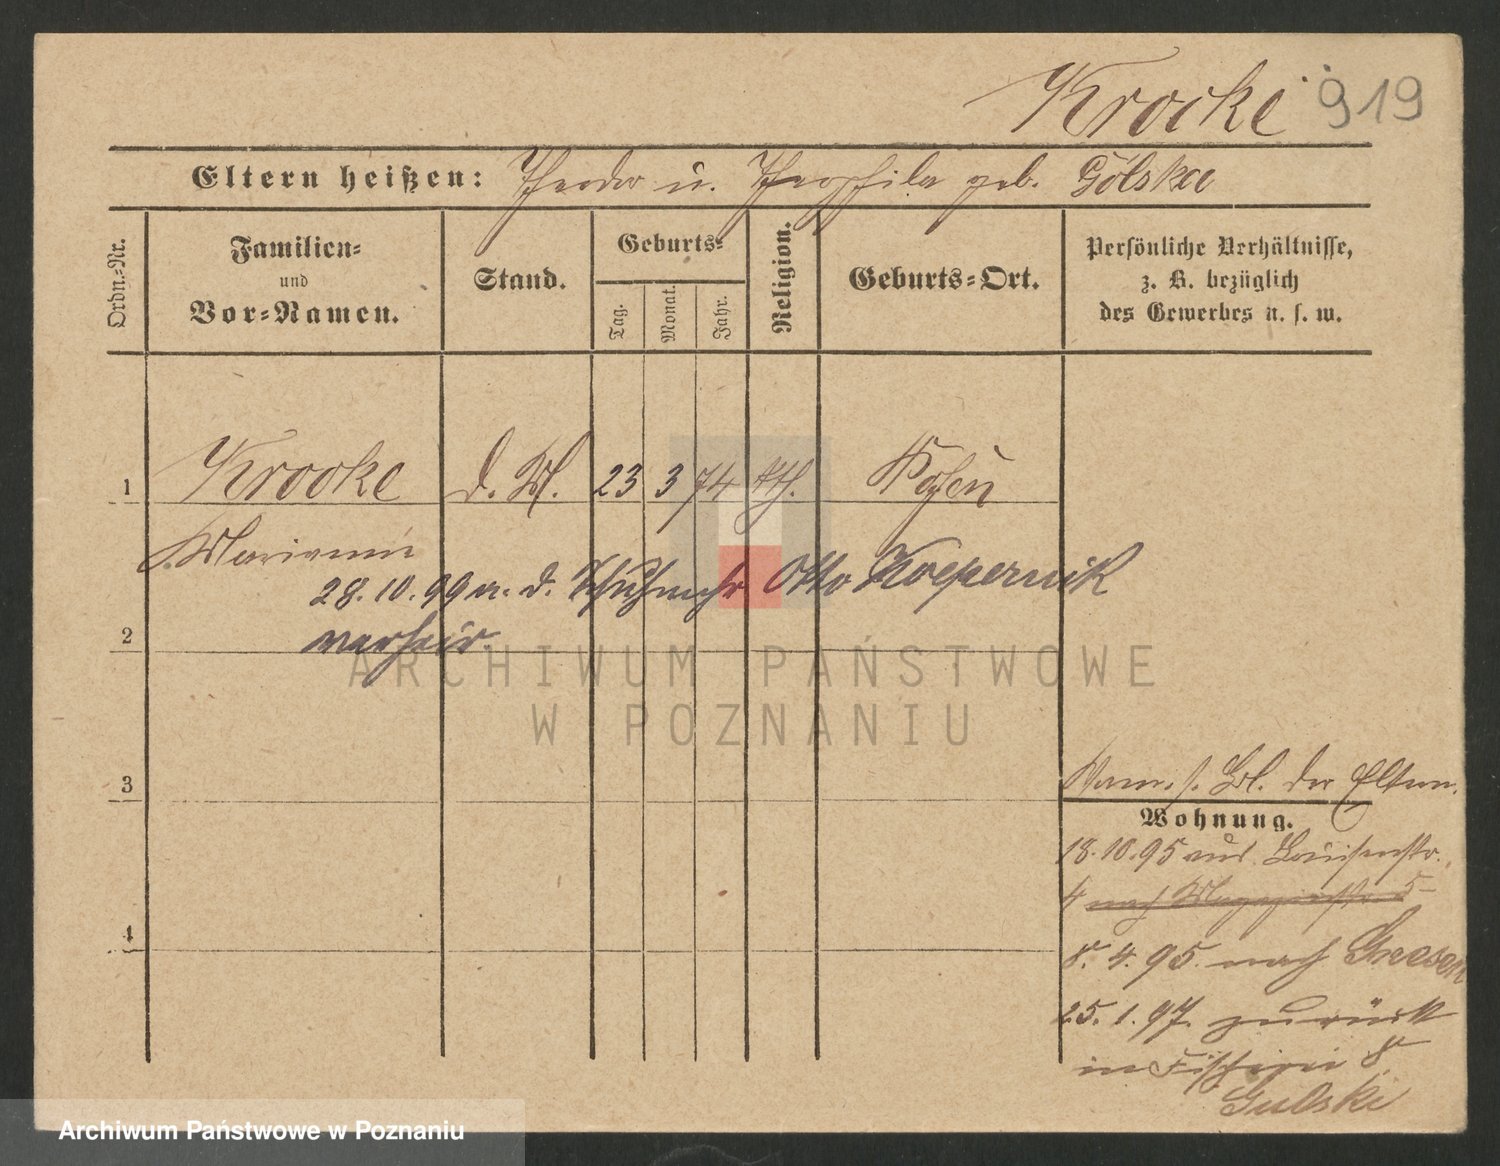 Krocke 919
Eltern heißen: Theodor u. Theophila geb. Gólska
Ordn.=Nr.
Familien=
und
Vor=Namen.
Stand.
Geburts=
Tag.
Monat.
Jahr.
Religion.
Geburts=Ort.
Persönliche Verhältnisse,
z. B. bezüglich
des Gewerbes u. s. w.
1 Krocke d. M. 23 3 74 kth. Posen
Marianna
28.10.99 m. d. Otto Kopernik
2 verheir.
ARCHIWUM PAŃSTWOWE
W POZNANIU
3
der Eltern.
Wohnung.
18.10.95 aus Louisenstr.
4 nach 5
4
8.4.95. nach Gnesen
25.1.97. zurück
in Fischerei 8
Gulski
Archiwum Państwowe w Poznaniu